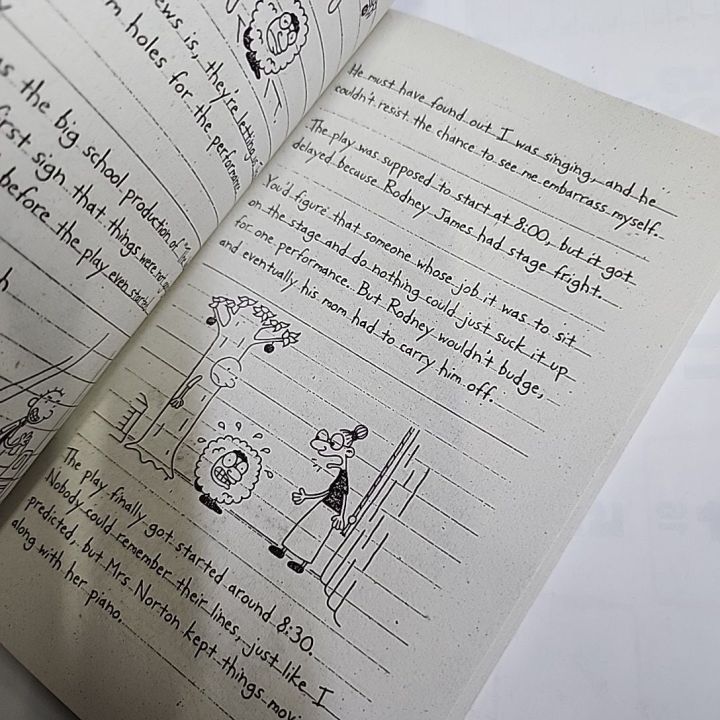 ews is, they're letting us
m holes for the performan
s the big school production of "The
first sign that things were not
before the play even started
He must have found out I was singing, and he
couldn't resist the chance to see me embarrass myself.
The play was supposed to start at 8:00, but it got
delayed because Rodney James had stage fright.
You'd figure that someone whose job it was to sit
on the stage and do nothing could just suck it up
for one performance. But Rodney wouldn't budge,
and eventually his mom had to carry him off.
The play finally got started around 8:30.
Nobody could remember their lines, just like I
predicted, but Mrs. Norton kept things movi
along with her piano.